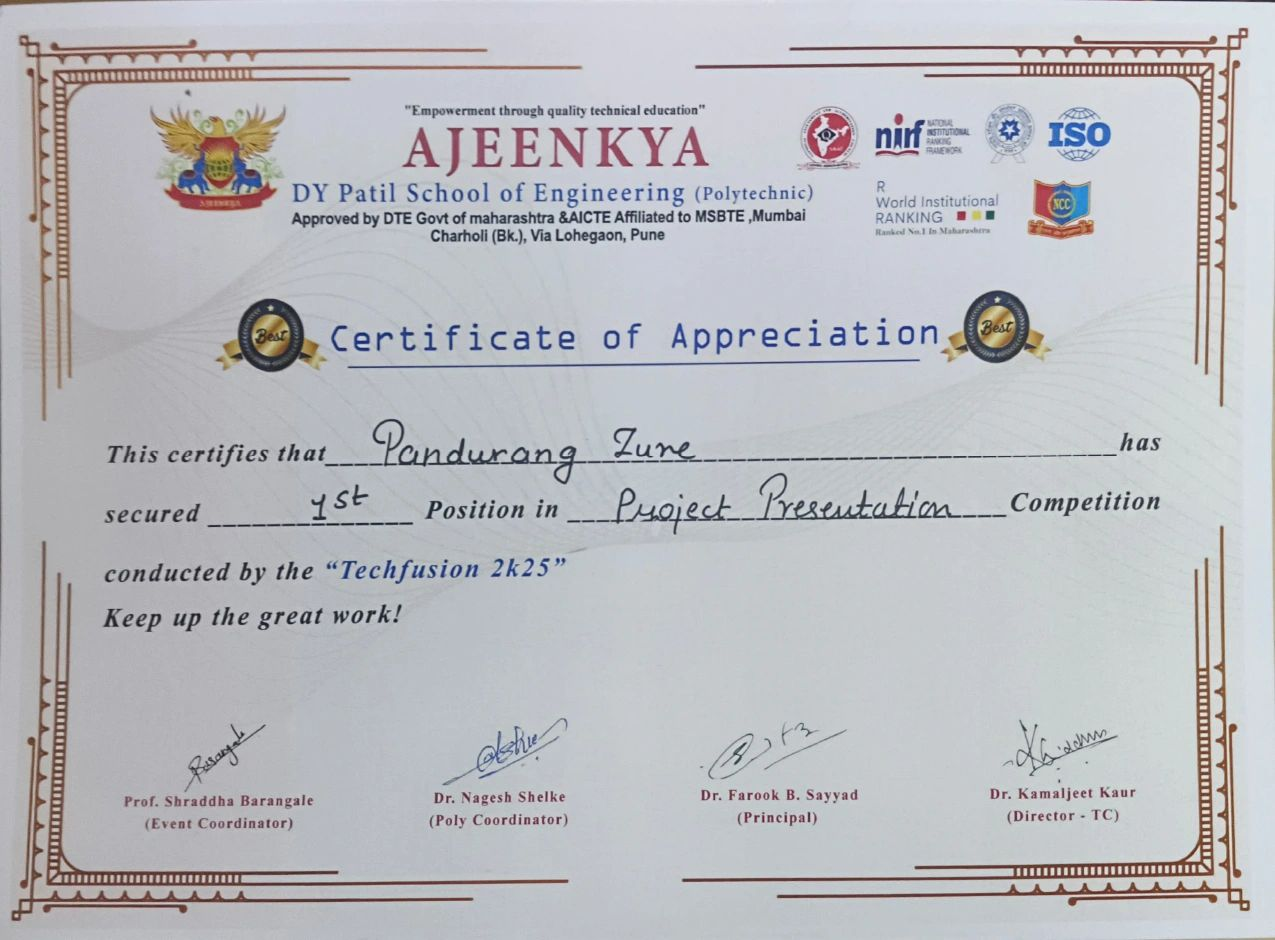 "Empowerment through quality technical education"
AJEENKYA
DY Patil School of Engineering (Polytechnic)
Approved by DTE Govt of maharashtra &AICTE Affiliated to MSBTE ,Mumbai
Charholi (Bk.), Via Lohegaon, Pune
AJEENKYA
nirf NATIONAL
INSTITUTIONAL
RANKING
FRAMEWORK
ISO
R
World Institutional
RANKING
Ranked No.1 In Maharashtra
NCC
Best
Certificate of Appreciation
Best
This certifies that Pandurang Zune has
secured 1st Position in Project Presentation Competition
conducted by the “Techfusion 2k25”
Keep up the great work!
Barangale
Prof. Shraddha Barangale
(Event Coordinator)
Dr. Nagesh Shelke
(Poly Coordinator)
Dr. Farook B. Sayyad
(Principal)
Dr. Kamaljeet Kaur
(Director - TC)